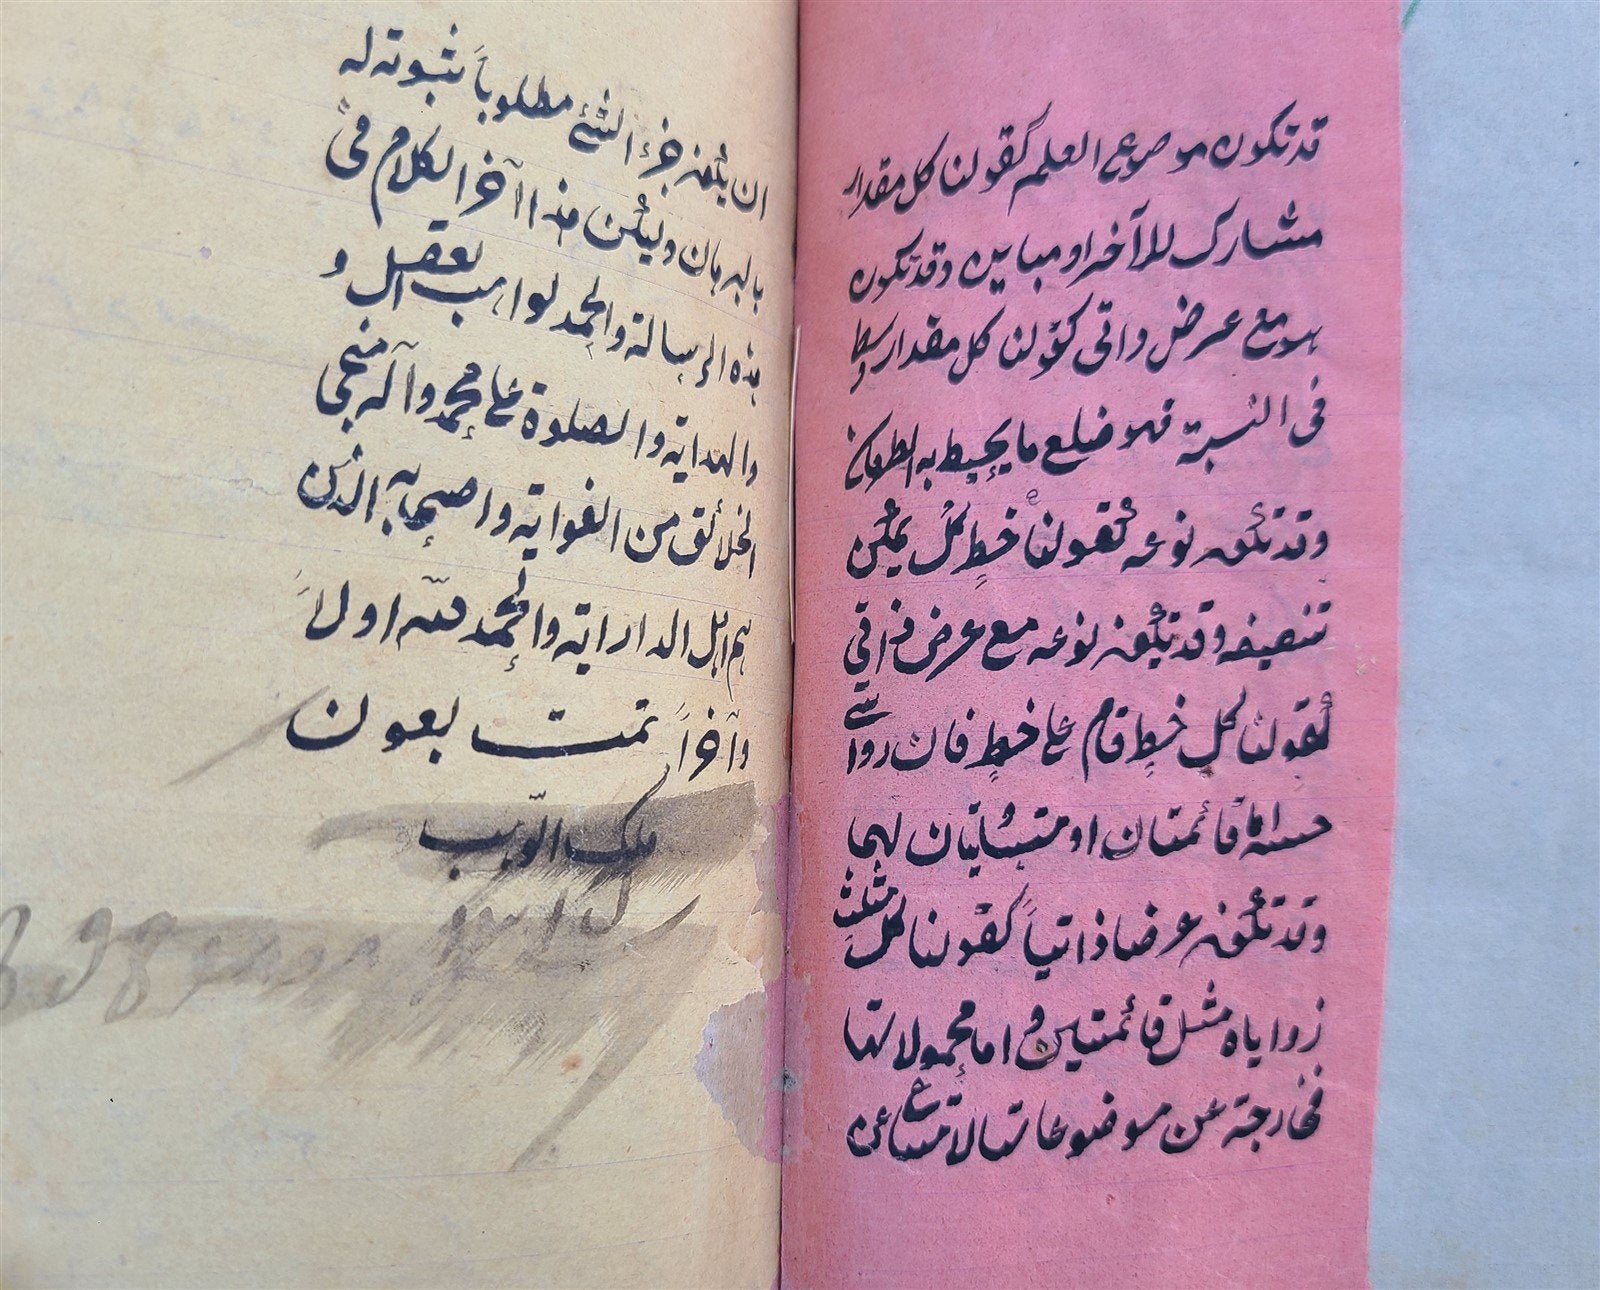 قد تكون موضوع العلم كقولنا كل مقدار
مشارك للآخر او مباين وقد تكون
هو مع عرض ذاتی كقولنا كل مقدار وسط
فی النسبة فهو ضلع ما يحيط به الطرفان
وقد تكون نوعه كقولنا كل خط يمكن
تنصيفه وقد تكون نوعه مع عرض ذاتی
كقولنا كل خط قام علی خط فان زوايتی
جنبيه اما قائمتان او متساويتان لهما
وقد تكون عرضا ذاتياً كقولنا كل مثلث
زواياه مثل قائمتين و اما محمولاتها
فخارجة عن موضوعاتها لامتناع
ان يكون جزء الشئ مطلوباً ثبوته له
بالبرهان وليكن هذا آخر الكلام فی
هذه الرسالة والحمد لواهب العقل و
والهداية والصلوة علی محمد وآله منجی
الخلائق من الغواية واصحابه الذين
هم اهل الدراية والحمد لله اولاً
وآخراً تمت بعون
ملك الوهاب